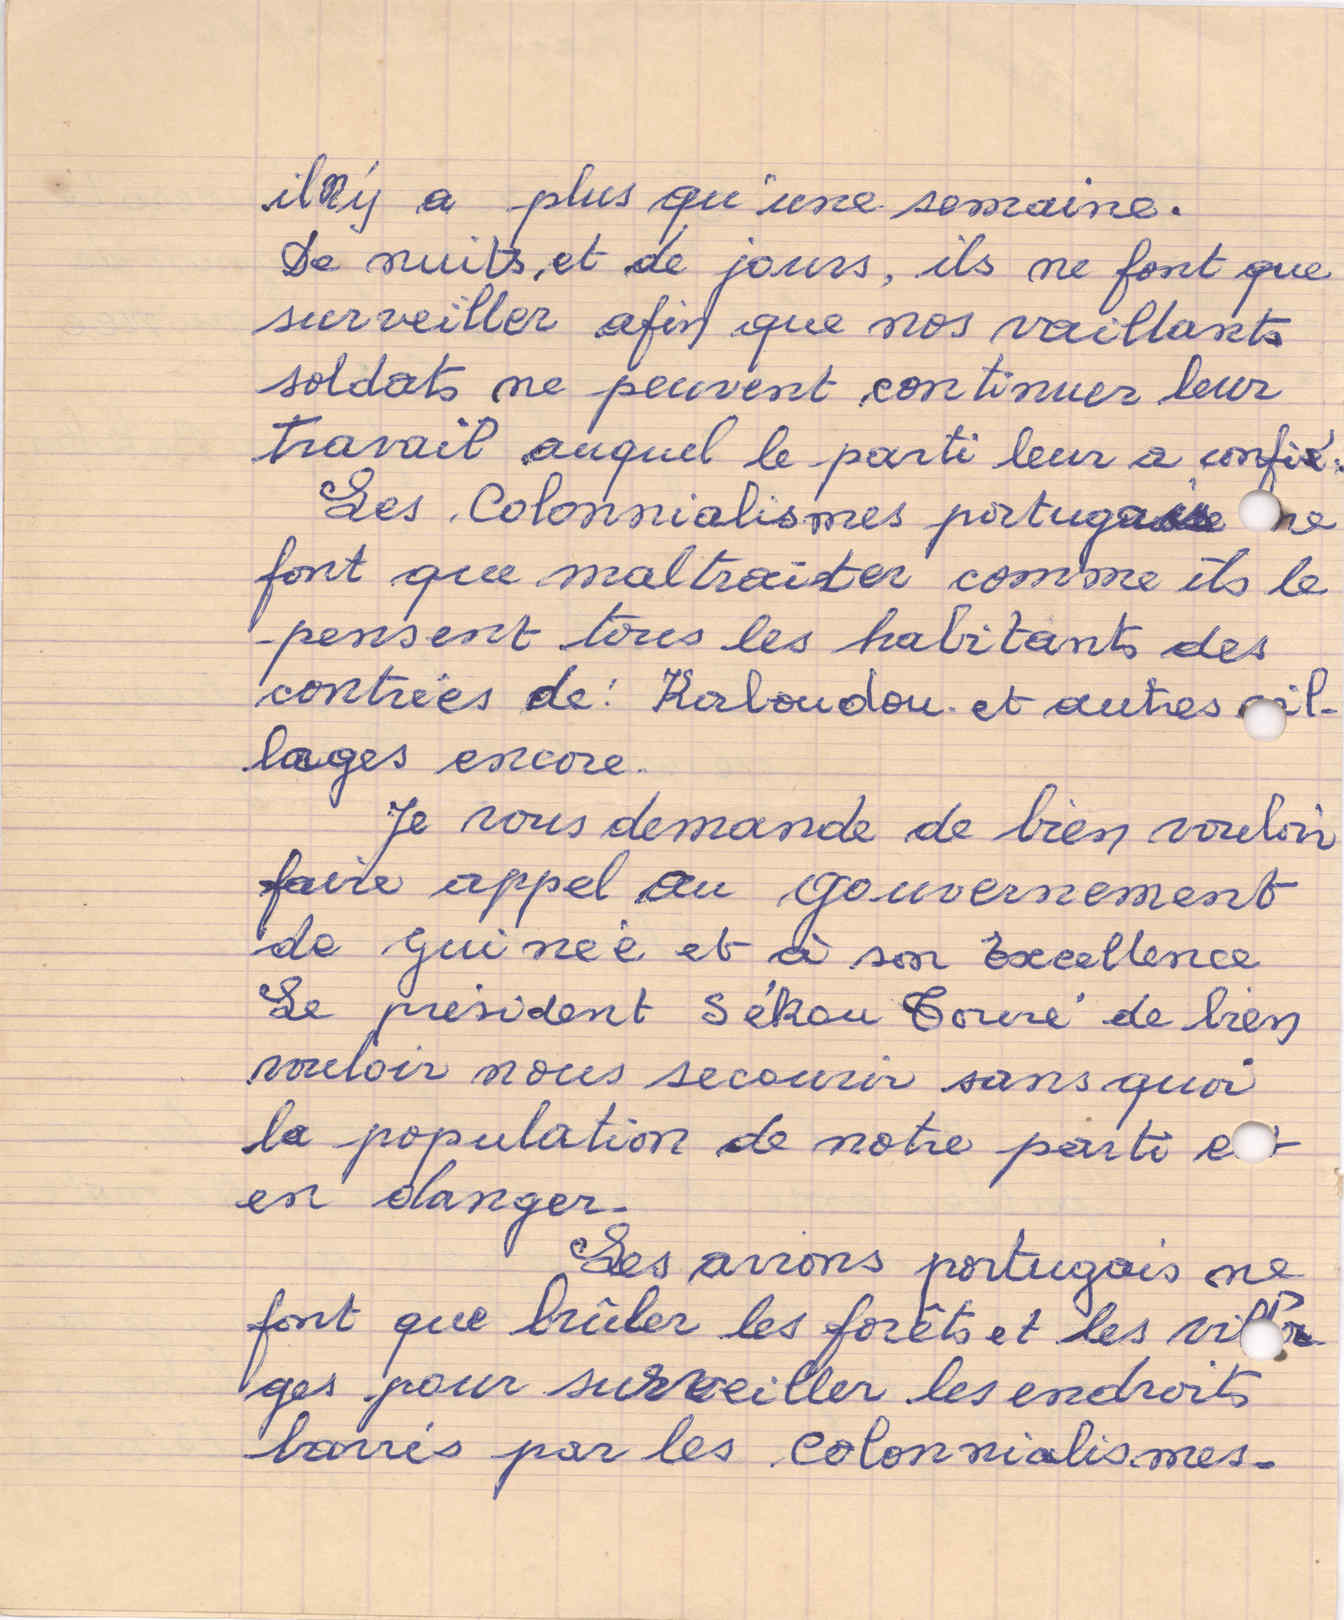 il n'y a plus qu'une semaine.
De nuits, et de jours, ils ne font que
surveiller afin que nos vaillants
soldats ne peuvent continuer leur
travail auquel le parti leur a confié.
Les Colonnialismes portugais ne
font que maltraiter comme ils le
pensent tous les habitants des
contrées de: Kaboudou et autres vil-
lages encore.
Je vous demande de bien vouloir
faire appel au gouvernement
de guinée et à son Excellence
Le président Sékou Touré de bien
vouloir nous secourir sans quoi
la population de notre parti est
en danger.
Les avions portugais ne
font que brûler les forêts et les villa
ges pour surveiller les endroits
barrés par les colonnialismes.